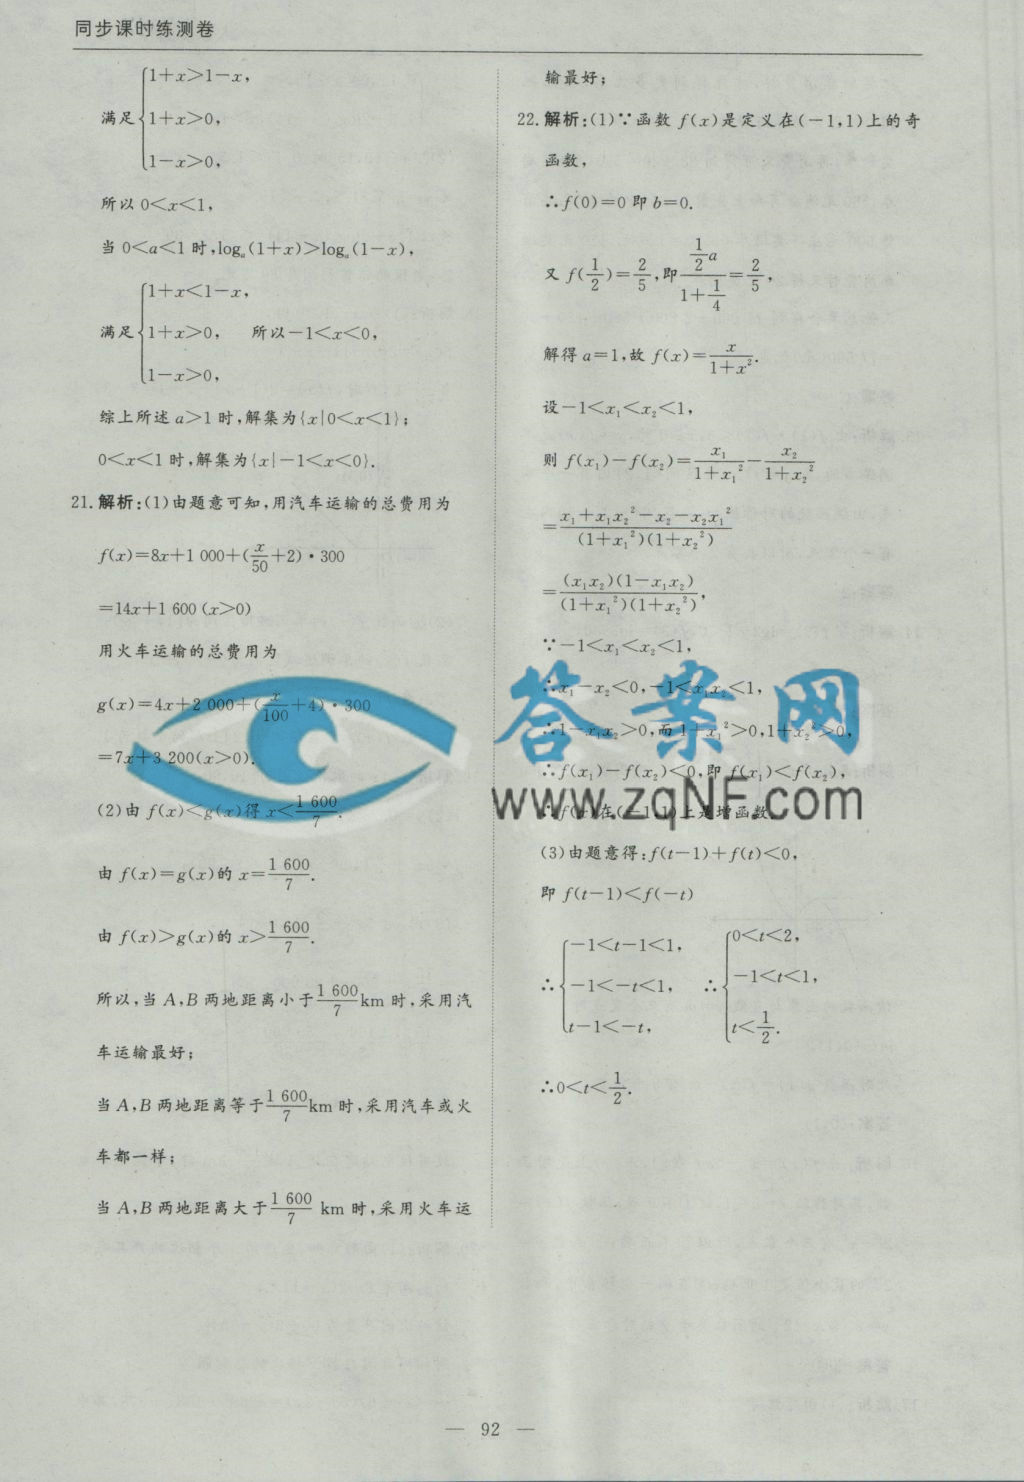 同步课时练测卷
满足{1+x>1-x,
1+x>0,
1-x>0,
所以0<x<1,
当0<a<1时,logₐ(1+x)>logₐ(1-x),
满足{1+x<1-x,
1+x>0,
1-x>0,
所以-1<x<0,
综上所述a>1时,解集为{x|0<x<1};
0<x<1时,解集为{x|-1<x<0}.
21.解析:(1)由题意可知,用汽车运输的总费用为
f(x)=8x+1 000+(x/50+2)·300
=14x+1 600(x>0)
用火车运输的总费用为
g(x)=4x+2 000+(x/100+4)·300
=7x+3 200(x>0).
(2)由f(x)<g(x)得x<1 600/7.
由f(x)=g(x)的x=1 600/7.
由f(x)>g(x)的x>1 600/7.
所以,当A,B两地距离小于1 600/7km时,采用汽
车运输最好;
当A,B两地距离等于1 600/7km时,采用汽车或火
车都一样;
当A,B两地距离大于1 600/7 km时,采用火车运
输最好;
22.解析:(1)∵函数f(x)是定义在(-1,1)上的奇
函数,
∴f(0)=0即b=0.
又f(1/2)=2/5,即(1/2 a)/(1+1/4)=2/5,
解得a=1,故f(x)=x/(1+x²).
设-1<x₁<x₂<1,
则f(x₁)-f(x₂)=x₁/(1+x₁²)-x₂/(1+x₂²)
=(x₁+x₁x₂²-x₂-x₂x₁²)/((1+x₁²)(1+x₂²))
=(x₁x₂)(1-x₁x₂)/((1+x₁²)(1+x₂²)),
∵-1<x₁<x₂<1,
∴x₁-x₂<0,-1<x₁x₂<1,
∴1-x₁x₂>0,而1+x₁²>0,1+x₂²>0,
∴f(x₁)-f(x₂)<0,即f(x₁)<f(x₂),
∴f(x)在(-1,1)上是增函数.
(3)由题意得:f(t-1)+f(t)<0,
即f(t-1)<f(-t)
∴{-1<t-1<1,
-1<-t<1,
t-1<-t,
∴{0<t<2,
-1<t<1,
t<1/2.
∴0<t<1/2.
答案网
www.zqNF.com
— 92 —